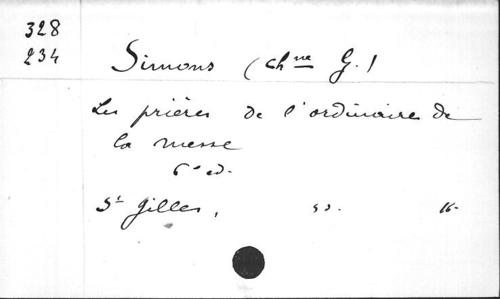 328
234
Simons (chne G.)
Les prières de l'ordinaire de
la messe
6e ed.
St Gilles, 16-